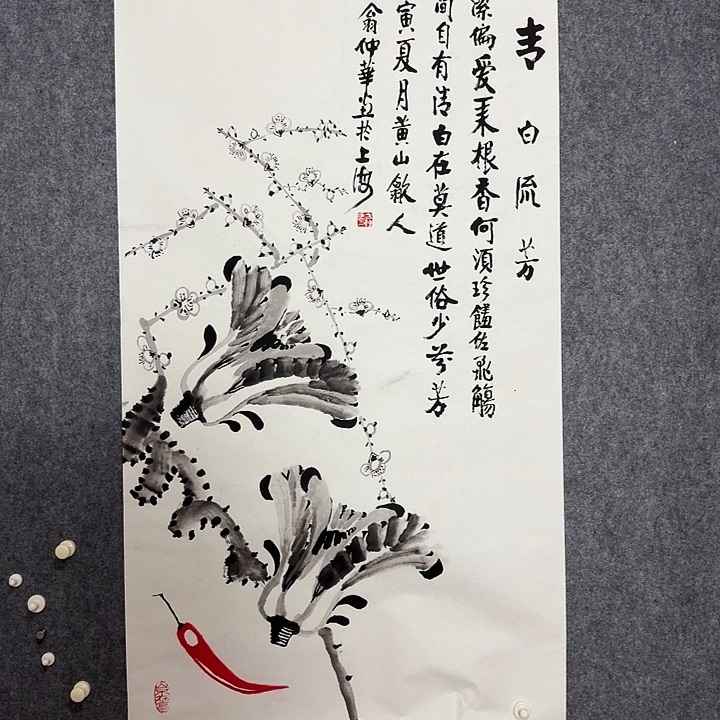 青白流芳
偏爱菜根香何须珍馐佐飛觴
間自有清白在莫道世俗少芬芳
寅夏月黄山歙人
翁仲華画於上海